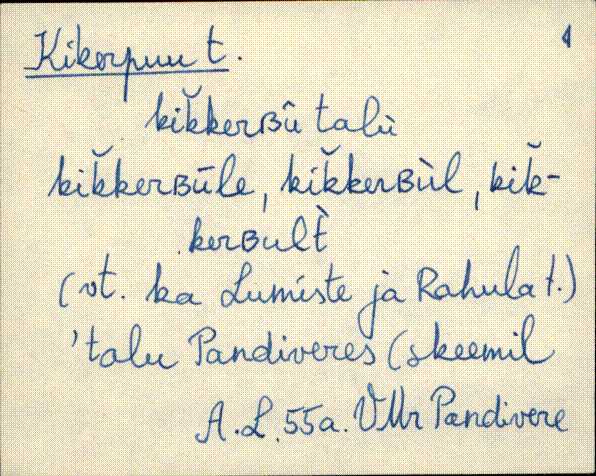 Kikerpuu t. 4
kik̆kerʙû talù
kik̆kerʙūle, kik̆kerʙùl, kik̆-
kerʙult̀
(vt. ka Lumiste ja Rahula t.)
'talu Pandiveres (skeemil
A.L. 55a. VMr Pandivere